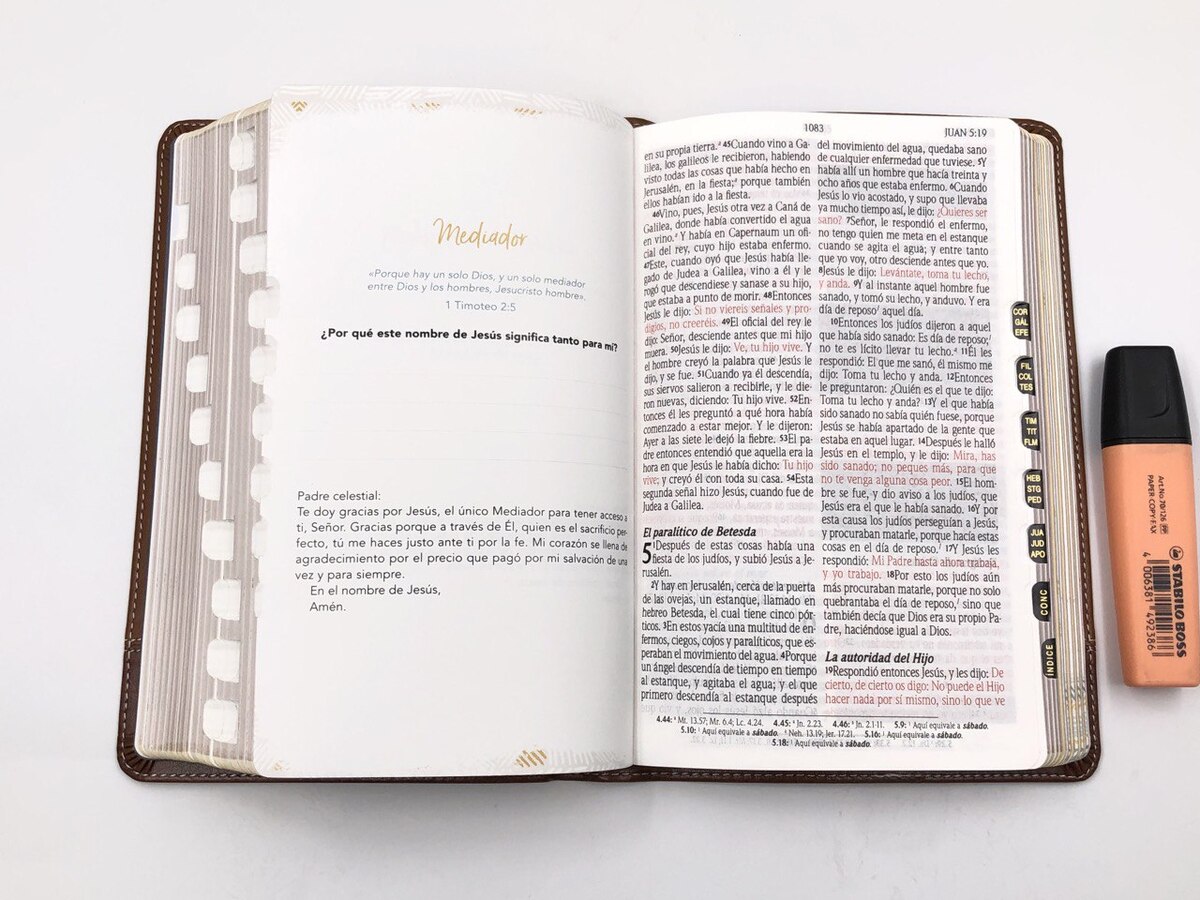 Mediador
«Porque hay un solo Dios, y un solo mediador
entre Dios y los hombres, Jesucristo hombre».
1 Timoteo 2:5
¿Por qué este nombre de Jesús significa tanto para mí?
Padre celestial:
Te doy gracias por Jesús, el único Mediador para tener acceso a
ti, Señor. Gracias porque a través de Él, quien es el sacrificio per-
fecto, tú me haces justo ante ti por la fe. Mi corazón se llena de
agradecimiento por el precio que pagó por mi salvación de una
vez y para siempre.
En el nombre de Jesús,
Amén.
1083
JUAN 5:19
en su propia tierra. 45Cuando vino a Ga-
lilea, los galileos le recibieron, habiendo
visto todas las cosas que había hecho en
Jerusalén, en la fiesta; porque también
ellos habían ido a la fiesta.
46Vino, pues, Jesús otra vez a Caná de
Galilea, donde había convertido el agua
en vino. Y había en Capernaum un ofi-
cial del rey, cuyo hijo estaba enfermo.
47Este, cuando oyó que Jesús había lle-
gado de Judea a Galilea, vino a él y le
rogó que descendiese y sanase a su hijo,
que estaba a punto de morir. 48Entonces
Jesús le dijo: Si no viereis señales y pro-
digios, no creeréis. 49El oficial del rey le
dijo: Señor, desciende antes que mi hijo
muera. 50Jesús le dijo: Ve, tu hijo vive. Y
el hombre creyó la palabra que Jesús le
dijo, y se fue. 51Cuando ya él descendía,
sus siervos salieron a recibirle, y le die-
ron nuevas, diciendo: Tu hijo vive. 52En-
tonces él les preguntó a qué hora había
comenzado a estar mejor. Y le dijeron:
Ayer a las siete le dejó la fiebre. 53El pa-
dre entonces entendió que aquella era la
hora en que Jesús le había dicho: Tu hijo
vive; y creyó él con toda su casa. 54Esta
segunda señal hizo Jesús, cuando fue de
Judea a Galilea.
El paralítico de Betesda
5 1Después de estas cosas había una
fiesta de los judíos, y subió Jesús a Je-
rusalén.
2Y hay en Jerusalén, cerca de la puerta
de las ovejas, un estanque, llamado en
hebreo Betesda, el cual tiene cinco pór-
ticos. 3En estos yacía una multitud de en-
fermos, ciegos, cojos y paralíticos, que es-
peraban el movimiento del agua. 4Porque
un ángel descendía de tiempo en tiempo
al estanque, y agitaba el agua; y el que
primero descendía al estanque después
del movimiento del agua, quedaba sano
de cualquier enfermedad que tuviese. 5Y
había allí un hombre que hacía treinta y
ocho años que estaba enfermo. 6Cuando
Jesús lo vio acostado, y supo que llevaba
ya mucho tiempo así, le dijo: ¿Quieres ser
sano? 7Señor, le respondió el enfermo,
no tengo quien me meta en el estanque
cuando se agita el agua; y entre tanto
que yo voy, otro desciende antes que yo.
8Jesús le dijo: Levántate, toma tu lecho,
y anda. 9Y al instante aquel hombre fue
sanado, y tomó su lecho, y anduvo. Y era
día de reposo aquel día.
10Entonces los judíos dijeron a aquel
que había sido sanado: Es día de reposo;
no te es lícito llevar tu lecho. 11Él les
respondió: El que me sanó, él mismo me
dijo: Toma tu lecho y anda. 12Entonces
le preguntaron: ¿Quién es el que te dijo:
Toma tu lecho y anda? 13Y el que había
sido sanado no sabía quién fuese, porque
Jesús se había apartado de la gente que
estaba en aquel lugar. 14Después le halló
Jesús en el templo, y le dijo: Mira, has
sido sanado; no peques más, para que
no te venga alguna cosa peor. 15El hom-
bre se fue, y dio aviso a los judíos, que
Jesús era el que le había sanado. 16Y por
esta causa los judíos perseguían a Jesús,
y procuraban matarle, porque hacía estas
cosas en el día de reposo. 17Y Jesús les
respondió: Mi Padre hasta ahora trabaja,
y yo trabajo. 18Por esto los judíos aún
más procuraban matarle, porque no solo
quebrantaba el día de reposo, sino que
también decía que Dios era su propio Pa-
dre, haciéndose igual a Dios.
La autoridad del Hijo
19Respondió entonces Jesús, y les dijo: De
cierto, de cierto os digo: No puede el Hijo
hacer nada por sí mismo, sino lo que ve
4.44: Mt. 13.57; Mr. 6.4; Lc. 4.24. 4.45: Jn. 2.23. 4.46: Jn. 2.1-11. 5.9: Aquí equivale a sábado.
5.10: Aquí equivale a sábado. Neh. 13.19; Jer. 17.21. 5.16: Aquí equivale a sábado.
5.18: Aquí equivale a sábado.
COR
GÁL
EFE
FIL
COL
TES
TIM
TIT
FLM
HEB
STG
PED
JUA
JUD
APO
CONC
ÍNDICE
Art.No. 70/126
PAPER·COPY·FAX
4 006381 492386
STABILO BOSS